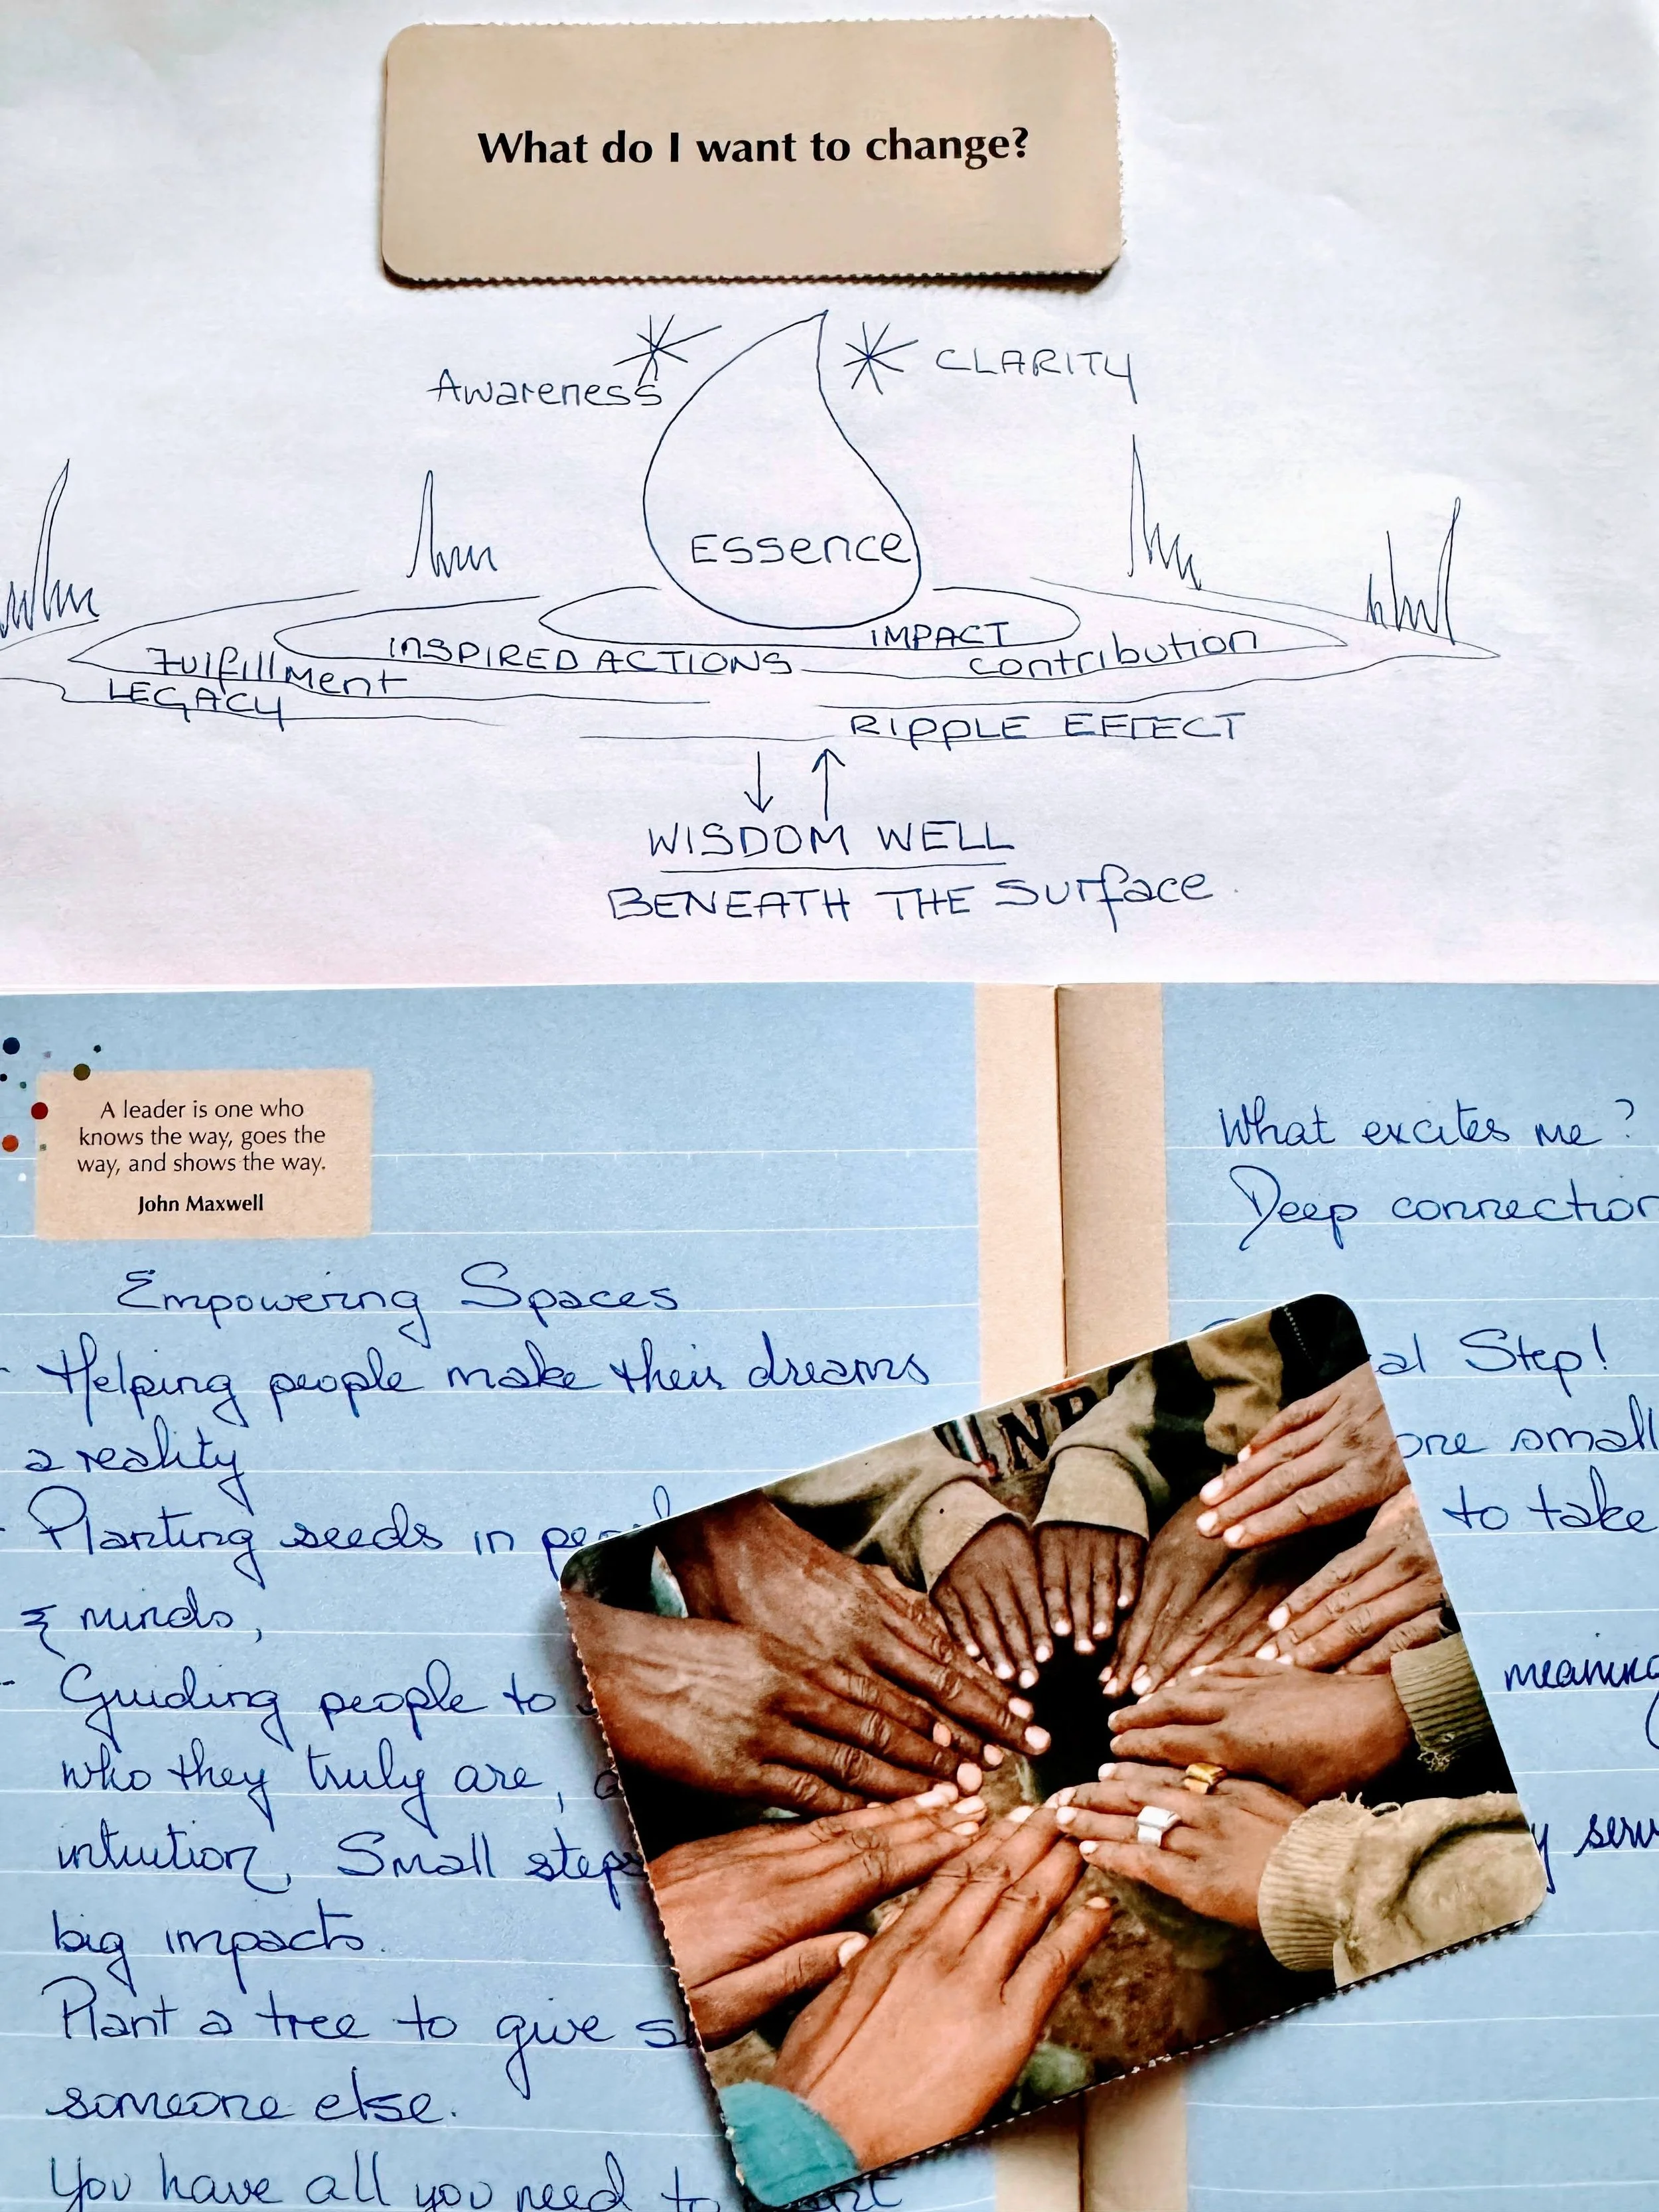 What do I want to change?
Awareness
CLARITY
Essence
IMPACT
INSPIRED ACTIONS
contribution
Fulfillment
LEGACY
RIPPLE EFFECT
WISDOM WELL
BENEATH THE Surface
A leader is one who
knows the way, goes the
way, and shows the way.
John Maxwell
Empowering Spaces
- Helping people make their dreams
a reality
- Planting seeds in
& minds,
- Guiding people to
who they truly are,
intuition. Small steps
big impacts.
Plant a tree to give
someone else.
You have all you need to
What excites me?
Deep connection
Step!
one small
to take